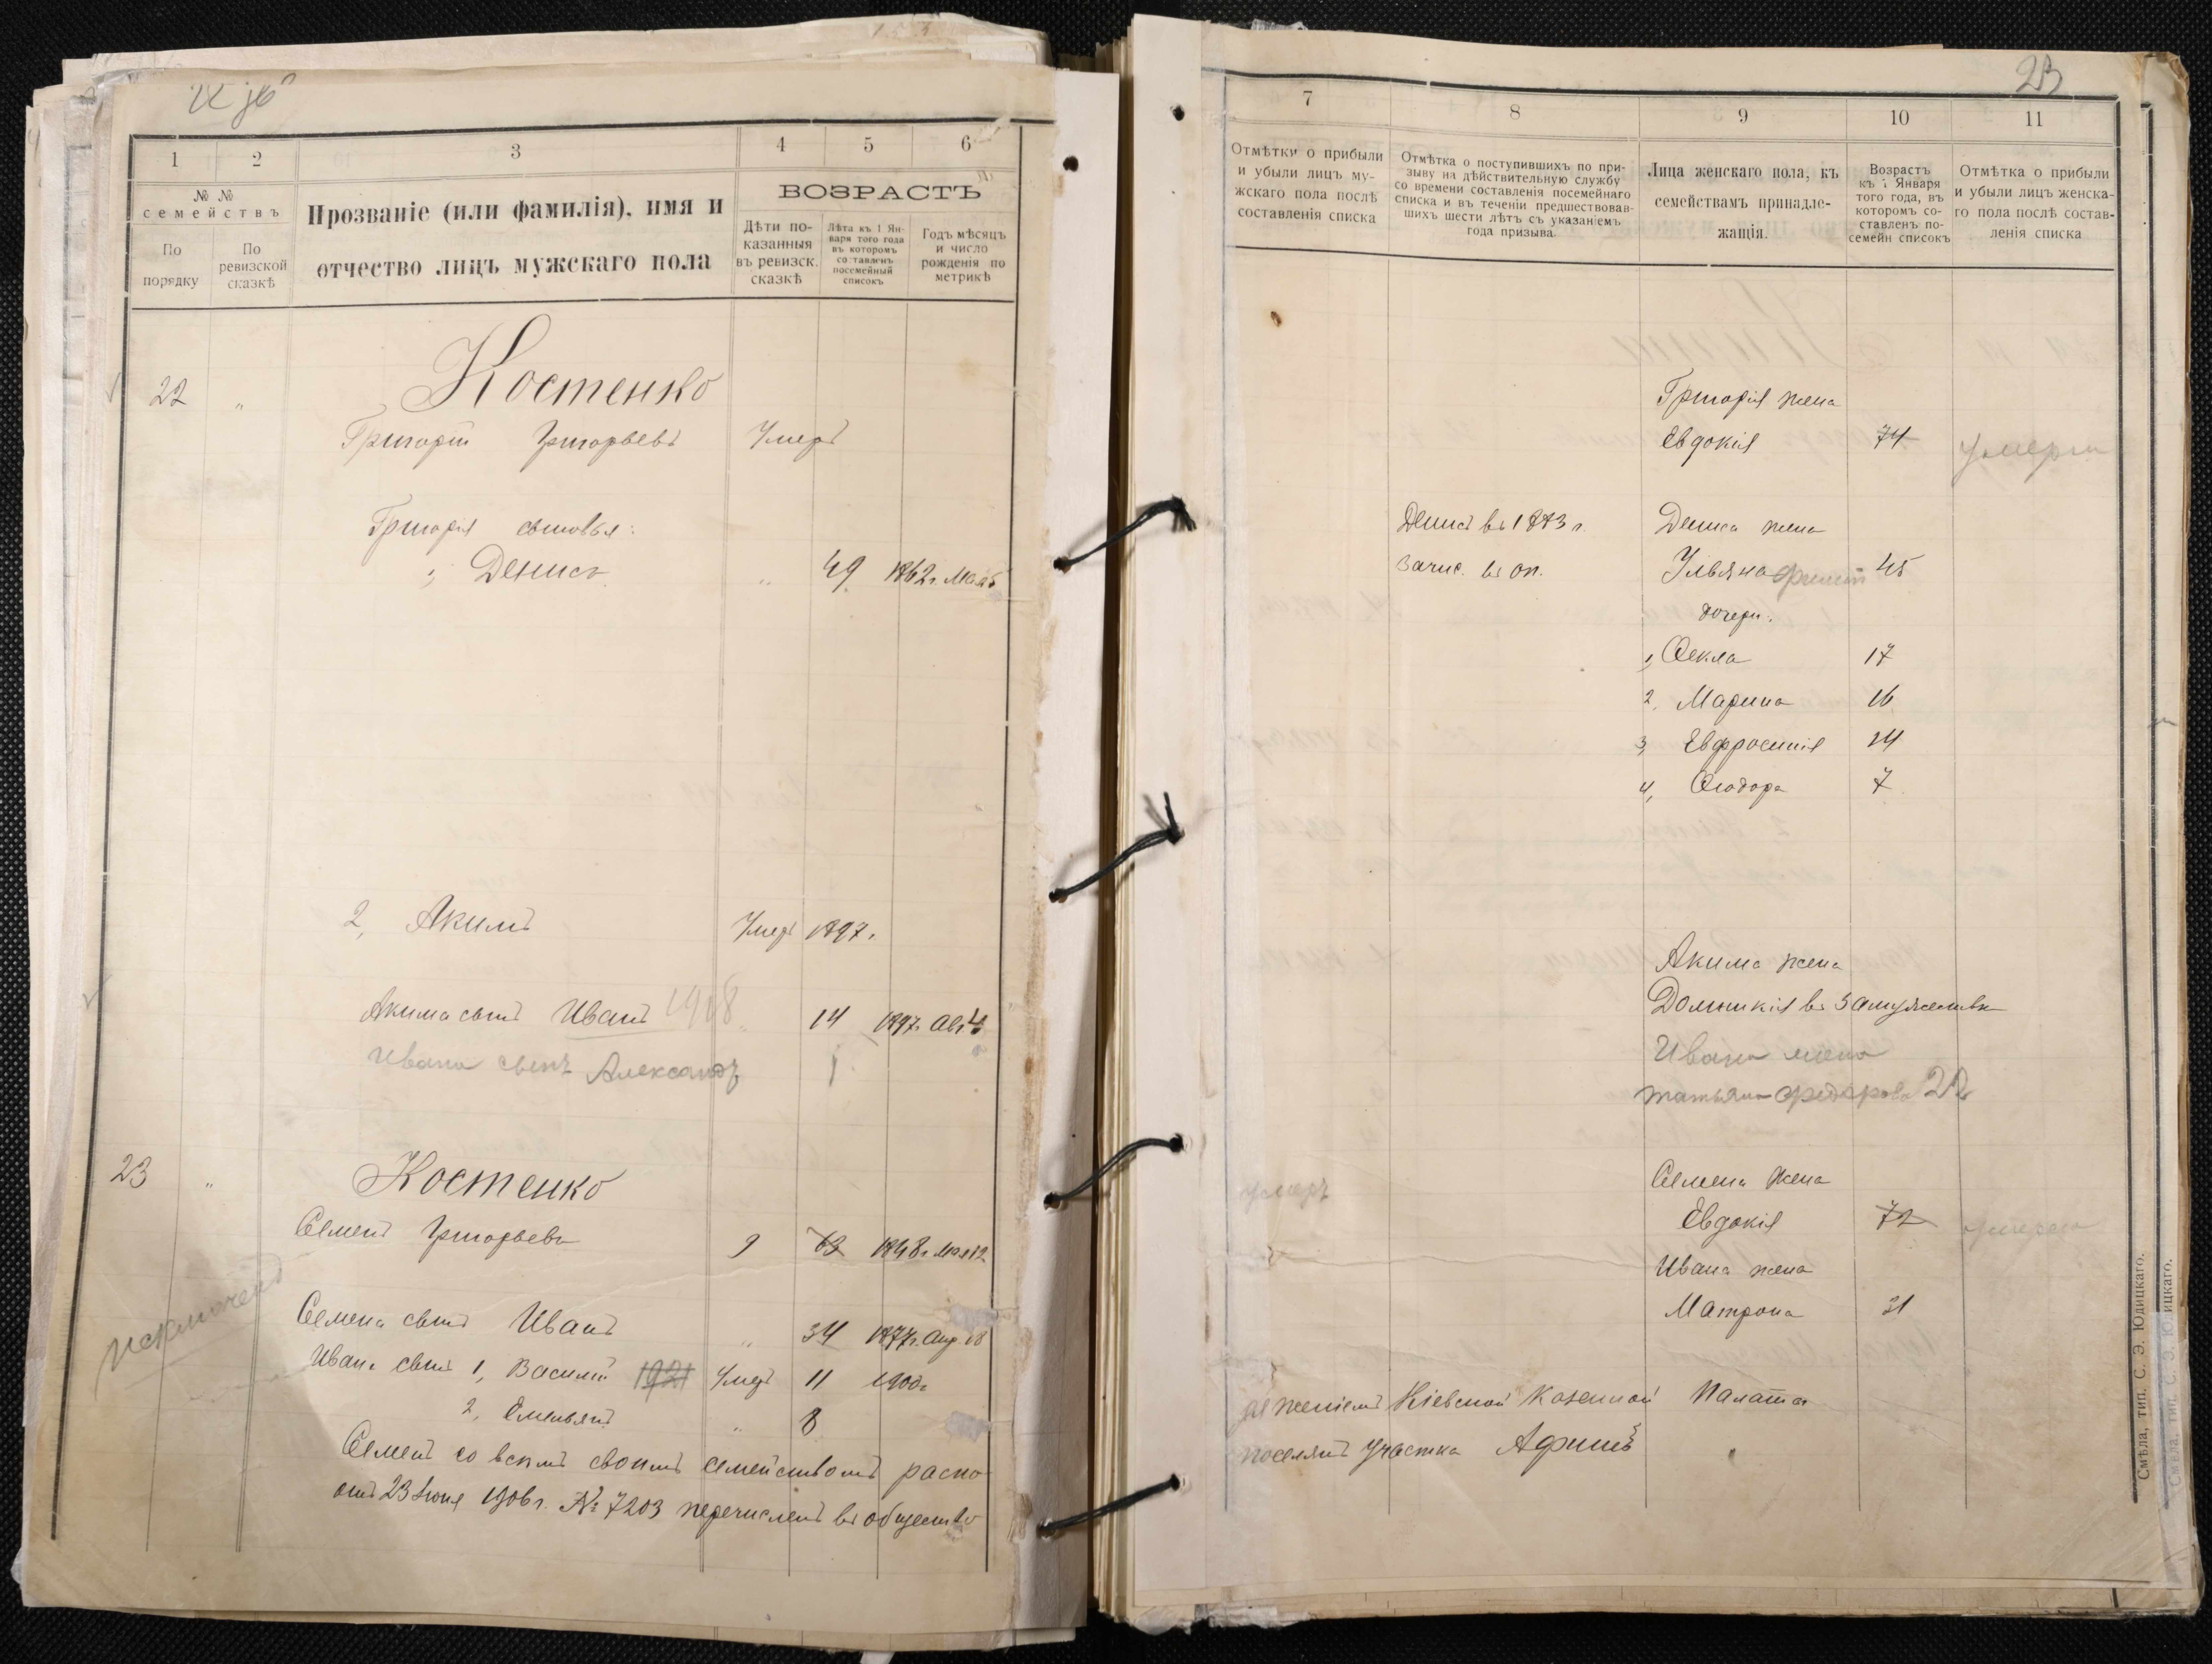 23
1
2
3
4
5
6
№ №
семействъ
По
порядку
По
ревизской
сказкѣ
Прозваніе (или фамилія), имя и
отчество лицъ мужскаго пола
ВОЗРАСТЪ
Дѣти по-
казанныя
въ ревизск.
сказкѣ
Лѣта къ 1 Ян-
варя того года
въ которомъ
составленъ
посемейный
списокъ
Годъ мѣсяцъ
и число
рожденія по
метрикѣ
22 "
Костенко
Григорій Григорьевъ Умеръ
Григорія сыновья:
1, Денисъ " 49 1862 г. Мая 5
2, Акимъ Умеръ 1897 г.
Акима сынъ Иванъ 1918 " 14 1897 г. Авг. 4
Ивана сынъ Александъ 1
23 "
Костенко
Семенъ Григорьевъ 9 63 1848 г. Мая 12
исключенъ
Семена сынъ Иванъ " 34 1877 г. Апр. 18
Ивана сын. 1, Василій 1921 Умеръ 11 1900 г.
2, Емельянъ " 8
Семенъ со всѣмъ своимъ семействомъ распо-
отъ 23 Іюня 1906 г. № 7203 перечисленъ въ общество
7
8
9
10
11
Отмѣтки о прибыли
и убыли лицъ му-
жскаго пола послѣ
составленія списка
Отмѣтка о поступившихъ по при-
зыву на дѣйствительную службу
со времени составленія посемейнаго
списка и въ теченіи предшествовав-
шихъ шести лѣтъ съ указаніемъ
года призыва.
Лица женскаго пола, къ
семействамъ принадле-
жащія.
Возрастъ
къ 1 Января
того года, въ
которомъ со-
ставленъ по-
семейн списокъ
Отмѣтка о прибыли
и убыли лицъ женска-
го пола послѣ состав-
ленія списка
Григорія жена
Евдокія 74 умерла
Денисъ въ 1883 г. Дениса жена
зачис. въ оп. Ульяна 45
дочери:
1, Ѳекла 17
2, Марина 16
3, Евфросинія 14
4, Ѳеодора 7
Акима жена
Домникія въ замужествѣ
Ивана жена
татьяна Федорова 22
умеръ Семена жена
Евдокія 72 умерла
Ивана жена
Матрона 31
женіемъ Кіевской Казенной Палаты
поселянъ участка
Смѣла, тип. С. Э. Юдицкаго.